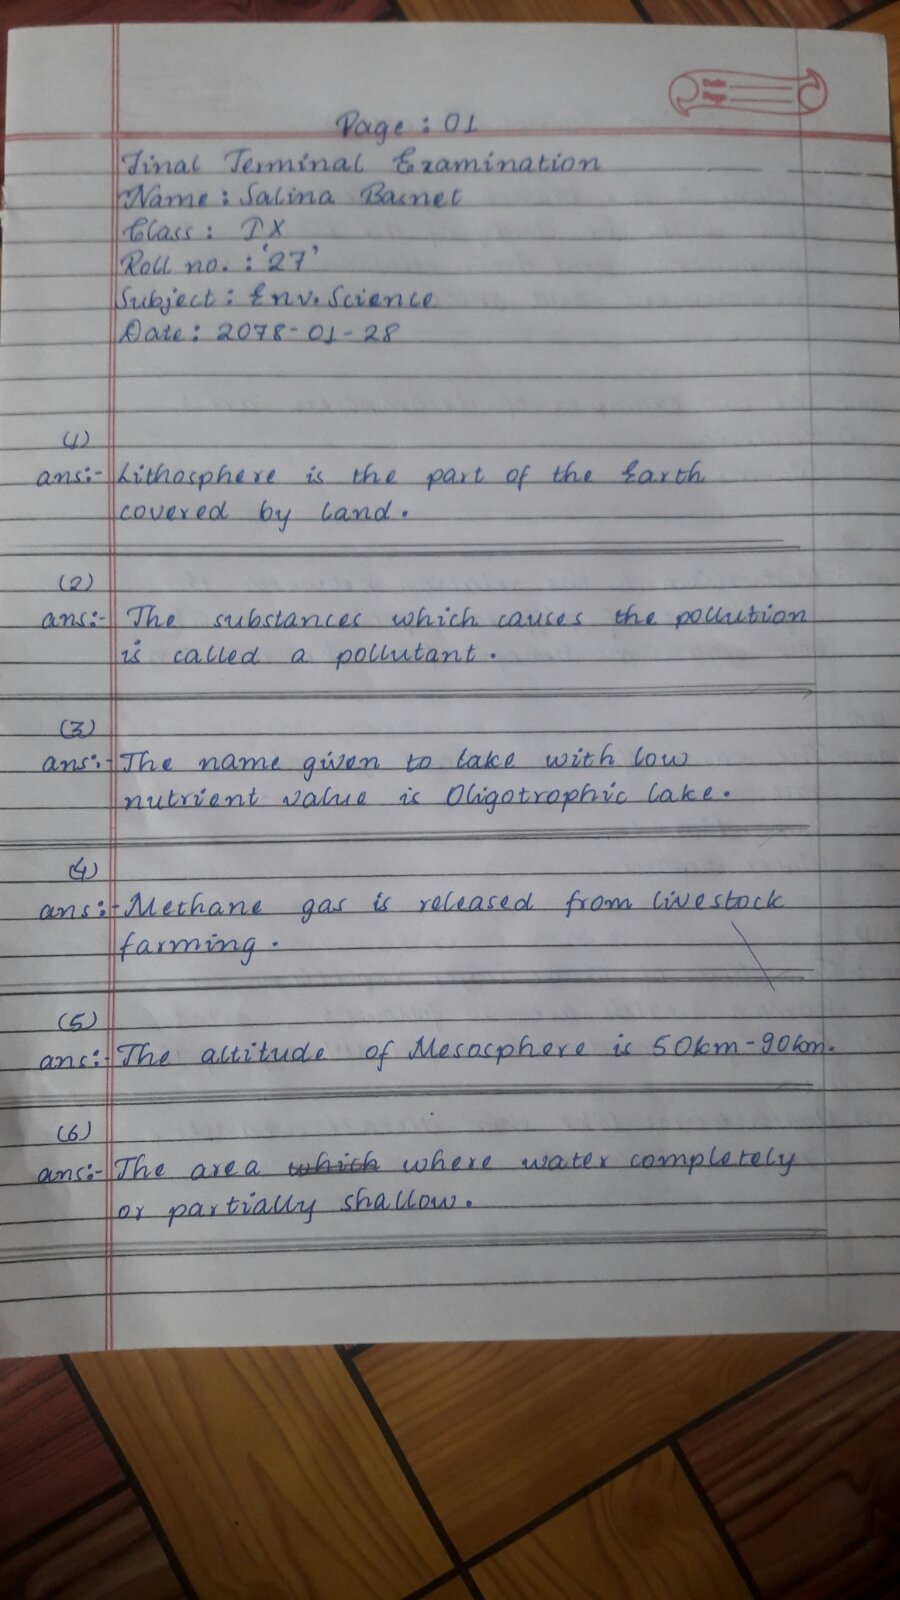 Date
Page
Page : 01
Final Terminal Examination
Name : Salina Basnet
Class : IX
Roll no. : '27'
Subject : Env. Science
Date : 2078-01-28
(1)
ans:- Lithosphere is the part of the Earth
covered by land.
(2)
ans:- The substances which causes the pollution
is called a pollutant.
(3)
ans:- The name given to lake with low
nutrient value is Oligotrophic lake.
(4)
ans:- Methane gas is released from livestock
farming.
(5)
ans:- The altitude of Mesosphere is 50km-90km.
(6)
ans:- The area which where water completely
or partially shallow.